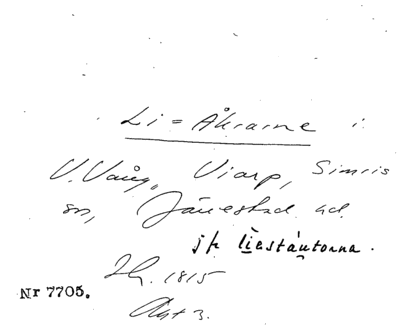 Li = Åkrarne i
V. Vång, Viarp, Simris
sn, Järrestad hd.
jfr liestáutorna.
Nr 7705.
1815
Akt 3.